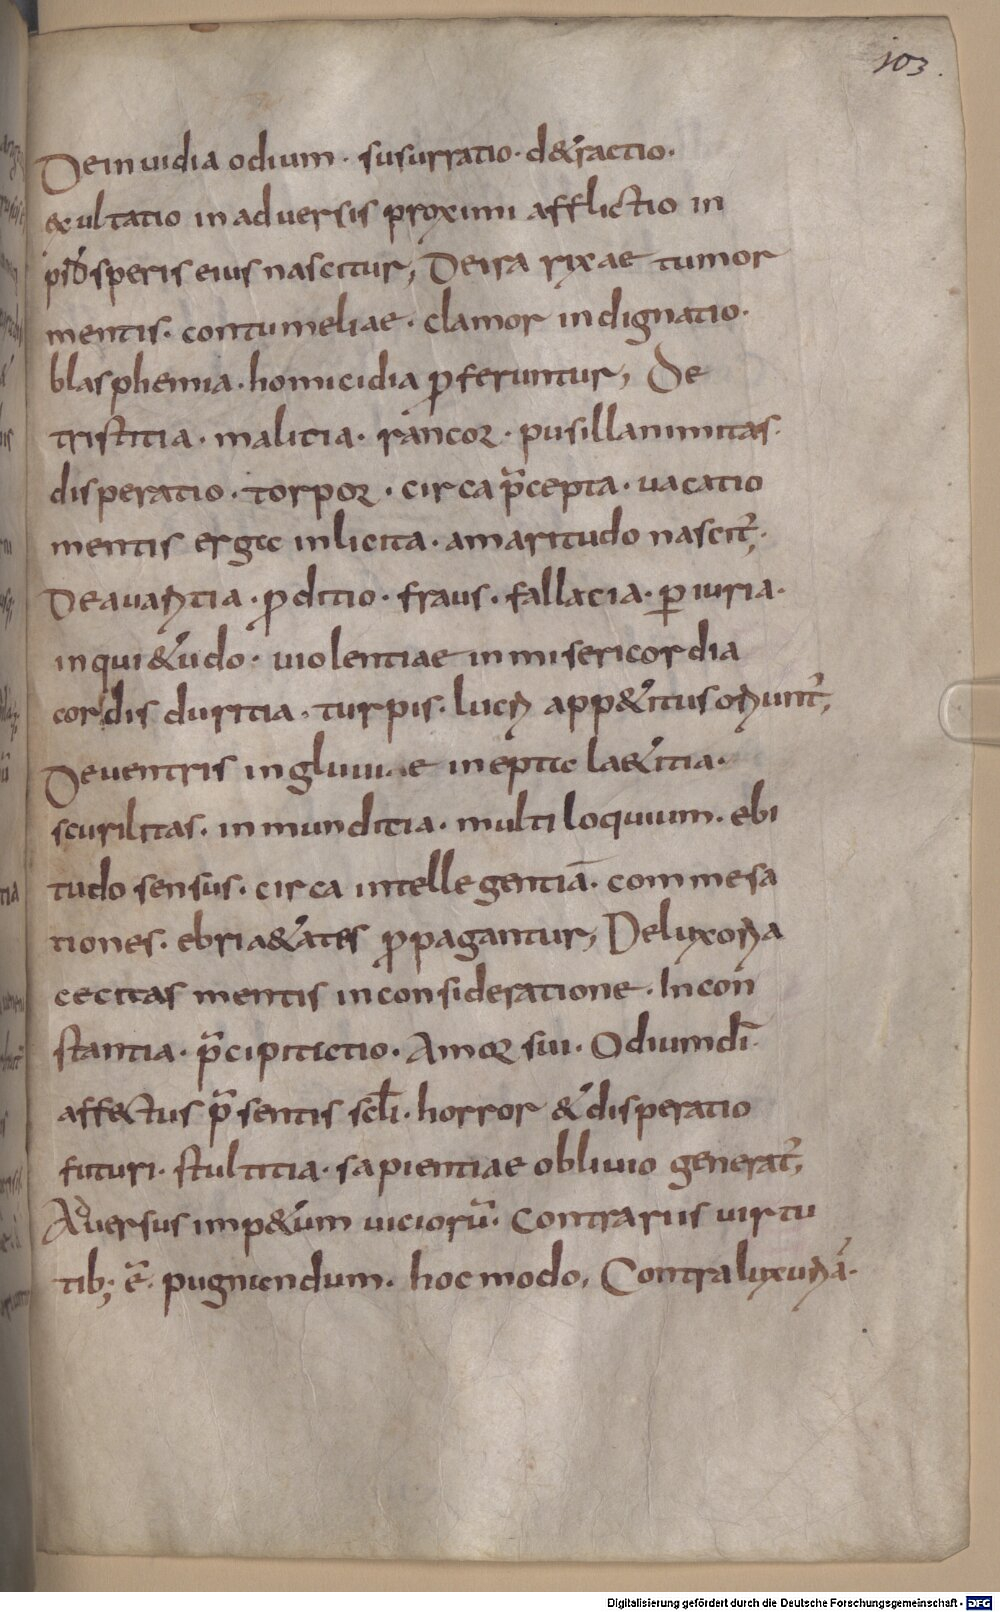 103.
De inuidia odium · susurratio · d&ractio ·
exultatio in aduersis proximi afflictio in
prosperis eius nascitur, De ira rixae tumor
mentis · contumeliae · clamor indignatio ·
blasphemia · homicidia ꝓferuntur, De
tristitia · malitia · rancor · pusillanimitas ·
disperatio · torpor · circa p̄cepta · uacatio
mentis erga inlicita · amaritudo nascit̄,
De auaritia · ꝓditio · fraus · fallacia · ꝑiuria ·
inqui&udo · uiolentiae inmisericordia
cordis duritia · turpis · lucri app&itus oriunt̄,
De uentris ingluuie inepta la&itia ·
scurilitas · inmunditia · multiloquium · ebi
tudo sensus · circa intellegentiā · commesa
tiones · ebria&ates ꝓpagantur, De luxoria
cecitas mentis inconsideratione · Incon
stantia · p̄cipitatio · Amor sui · Odium dī ·
aff&ctus p̄sentis scłi · horror & disperatio
futuri · stultitia · sapientiae obliuio generat̄,
Aduersus imp&um uiciorū · Contrariis uirtu
tib; ē · pugnandum · hoc modo, Contra luxuriā ·
Digitalisierung gefördert durch die Deutsche Forschungsgemeinschaft - DFG